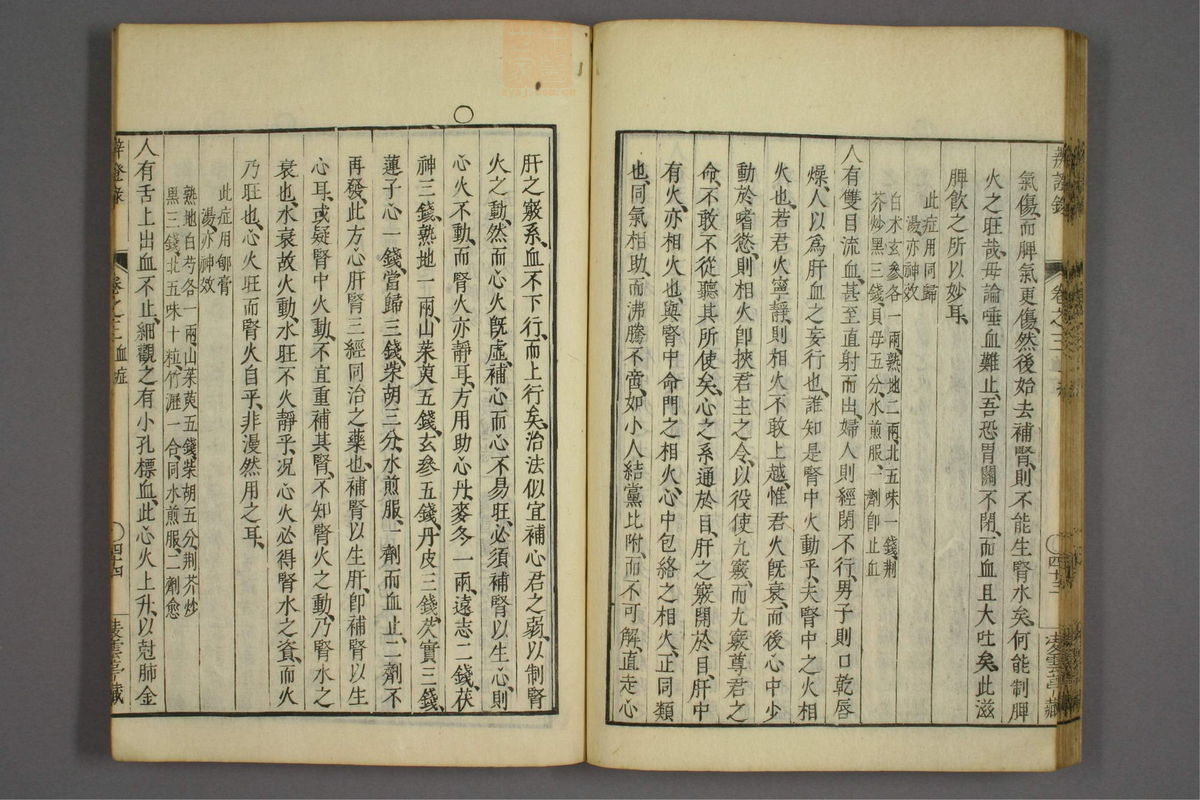 辨證錄
卷之三
四十三
凌雲亭藏
氣傷、而脾氣更傷、然後始去補腎、則不能生腎水矣、何能制脾
火之旺哉、毋論唾血難止、吾恐胃關不閉、而血且大吐矣、此滋
脾飲之所以妙耳、
此症用同歸
湯、亦神效
白术玄參各一兩、熟地二兩、北五味一錢、荆
芥炒黑三錢、貝母五分、水煎服、一劑即止血
人有雙目流血、甚至直射而出、婦人則經閉不行、男子則口乾唇
燥、人以爲肝血之妄行也、誰知是腎中火動乎、夫腎中之火、相
火也、若君火寧靜、則相火不敢上越、惟君火旣衰、而後心中少
動於嗜慾、則相火即挾君主之令、以役使九竅、而九竅尊君之
命、不敢不從聽其所使矣、心之系通於目、肝之竅開於目、肝中
有火、亦相火也、與腎中命門之相火、心中包絡之相火、正同類
也、同氣相助、而沸騰不啻、如小人結黨比附、而不可解、直走心
肝之竅系、血不下行、而上行矣、治法似宜補心君之弱、以制腎
火之動、然而心火旣虛、補心而心不易旺、必須補腎以生心、則
心火不動、而腎火亦靜耳、方用助心丹、麥冬一兩、遠志二錢、茯
神三錢、熟地一兩、山茱萸五錢、玄參五錢、丹皮三錢、芡實三錢、
蓮子心一錢、當歸三錢、柴胡三分、水煎服、一劑而血止、二劑不
再發、此方心肝腎三經同治之藥也、補腎以生肝、即補腎以生
心耳、或疑腎中火動、不宜重補其腎、不知腎火之動、乃腎水之
衰也、水衰故火動、水旺不火靜乎、况心火必得腎水之資、而火
乃旺也、心火旺而腎火自平、非漫然用之耳、
此症用郁膏
湯、亦神效
熟地白芍各一兩、山茱萸五錢、柴胡五分、荆芥炒
黑三錢、北五味十粒、竹瀝一合、同水煎服、二劑愈
人有舌上出血不止、細觀之有小孔標血、此心火上升、以尅肺金
辨證錄
卷之三血症
四十四
凌雲亭藏